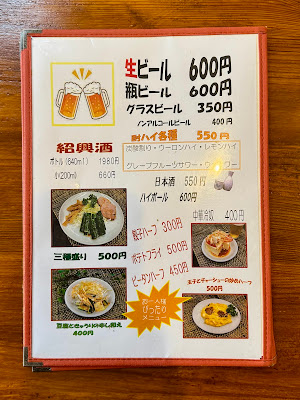 生ビール 600円
瓶ビール 600円
グラスビール 350円
ノンアルコールビール 400円
酎ハイ各種 550円
紹興酒
ボトル(640ml) 1980円
(200ml) 660円
炭酸割り・ウーロンハイ・レモンハイ
グレープフルーツサワー・
日本酒 550円
ハイボール 600円
餃子ハーフ 300円
ポテトフライ 500円
ピータンハーフ 450円
中華冷奴 400円
三種盛り 500円
玉子とチャーシューの炒めハーフ
500円
お一人様
ぴったり
メニュー
400円